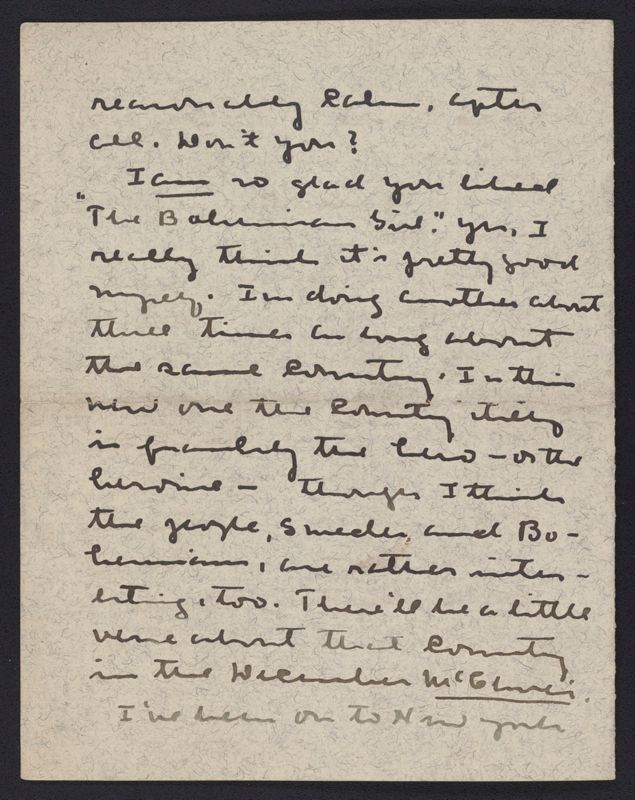 reasonably calm, after
all. Don't you?
I am so glad you liked
"The Bohemian Girl." Yes, I
really think it's pretty good
myself. I'm doing another about
three times as long about
the same Country. In this
new one the Country itself
is frankly the hero - or the
heroine - though I think
the people, Swedes and Bo-
hemians, are rather inter-
esting, too. There'll be a little
verse about that Country
in the December McClure's.
I've been on to New York